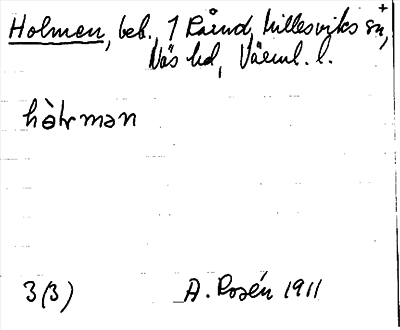 Holmen, beb., 1 Råind, Millesviks sn,+
Näs hd, Värml. l.
hòlrmən
3(3) A. Rosén 1911